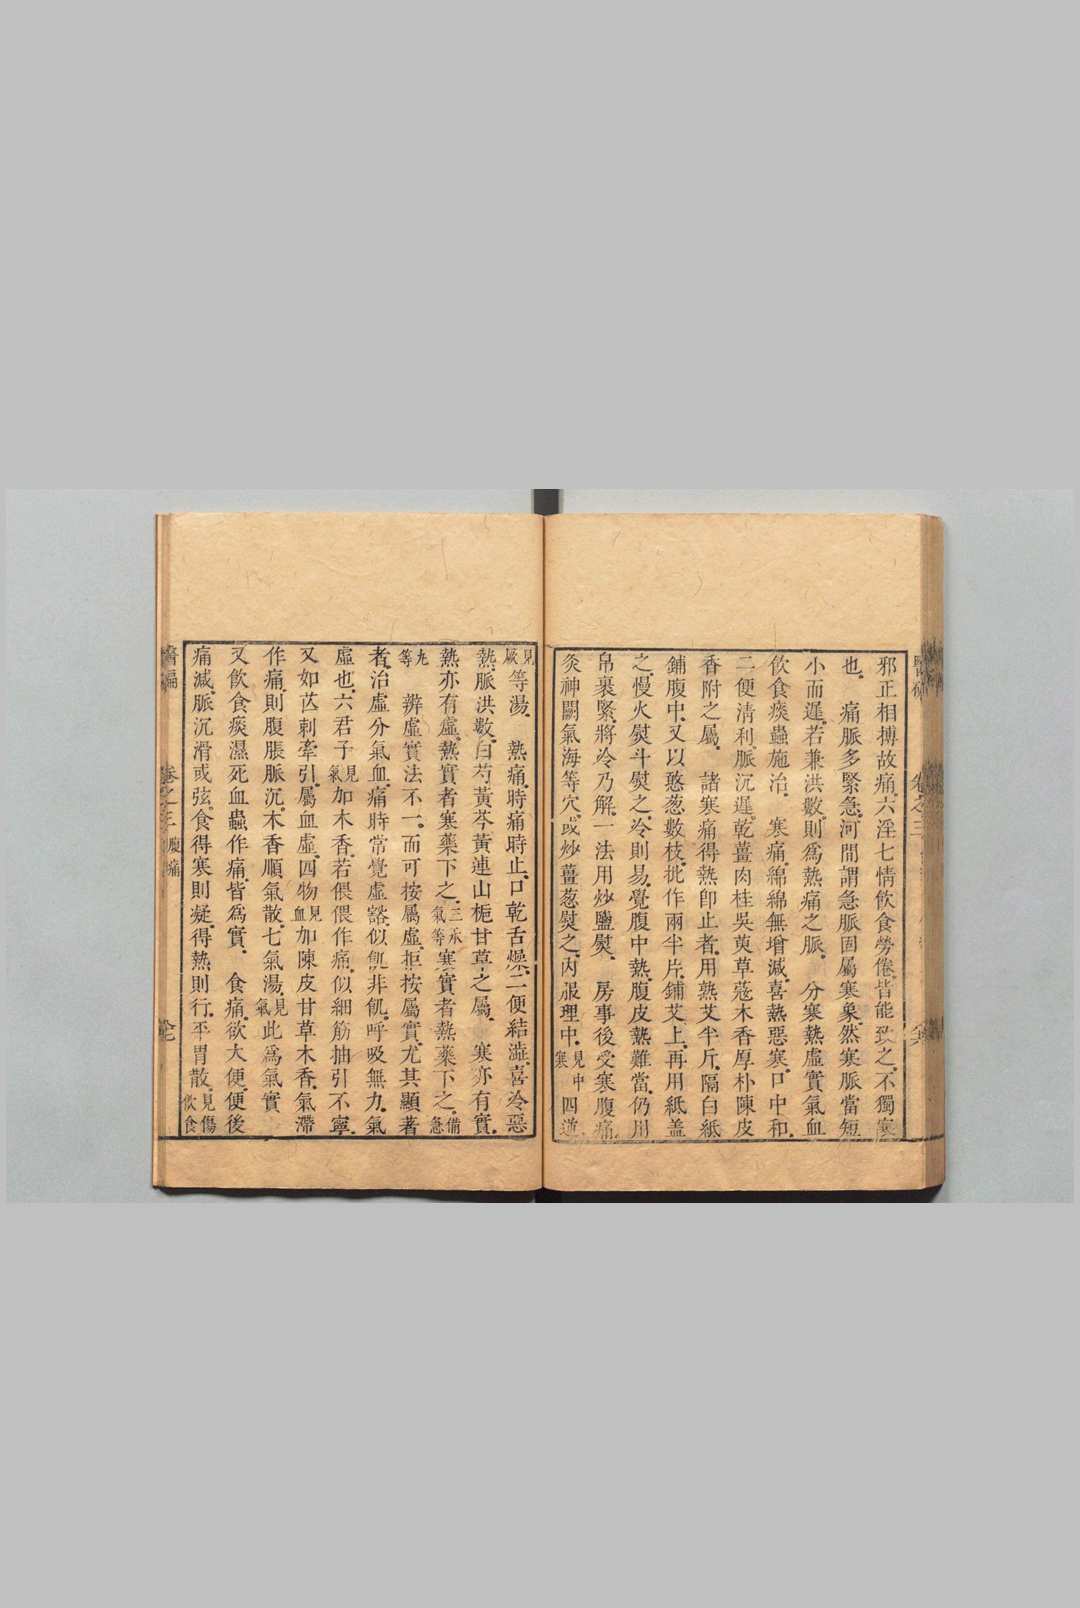 邪正相搏故痛.六淫七情飲食勞倦.皆能致之.不獨寒
也. 痛脈多緊急.河間謂急脈固屬寒象.然寒脈當短
小而遲.若兼洪數.則為熱痛之脈. 分寒熱虛實氣血
飲食痰蟲施治. 寒痛.綿綿無增減.喜熱惡寒.口中和.
二便清利.脈沉遲.乾薑肉桂吳萸草蔻木香厚朴陳皮
香附之屬. 諸寒痛得熱卽止者.用熟艾半斤.隔白紙
鋪腹中.又以憨葱數枝.批作兩半片.鋪艾上.再用紙盖
之.慢火熨斗熨之.冷則易.覺腹中熱.腹皮熱難當.仍用
帛裹緊.將冷乃解.一法用炒鹽熨. 房事後受寒腹痛.
灸神闕氣海等穴.或炒薑葱熨之.內服理中.見中寒四逆.
見厥等湯. 熱痛.時痛時止.口乾舌燥.二便結澁.喜冷惡
熱.脈洪數.白芍黃芩黃連山梔甘草之屬. 寒亦有實.
熱亦有虛.熱實者寒藥下之.三承氣等寒實者熱藥下之.備急
九等 辨虛實法不一.而可按屬虛.拒按屬實.尤其顯著
者.治虛分氣血.痛時常覺虛豁.似飢非飢.呼吸無力.氣
虛也.六君子見氣加木香.若偎偎作痛.似細筋抽引不寧.
又如芒刺牽引.屬血虛.四物見血加陳皮甘草木香.氣滯
作痛.則腹脹脈沉.木香順氣散.七氣湯.見氣此為氣實
又飲食痰濕死血蟲作痛.皆為實. 食痛.欲大便.便後
痛減.脈沉滑或弦.食得寒則凝.得熱則行.平胃散.見傷飲食
卷之三
卷之三 腹痛